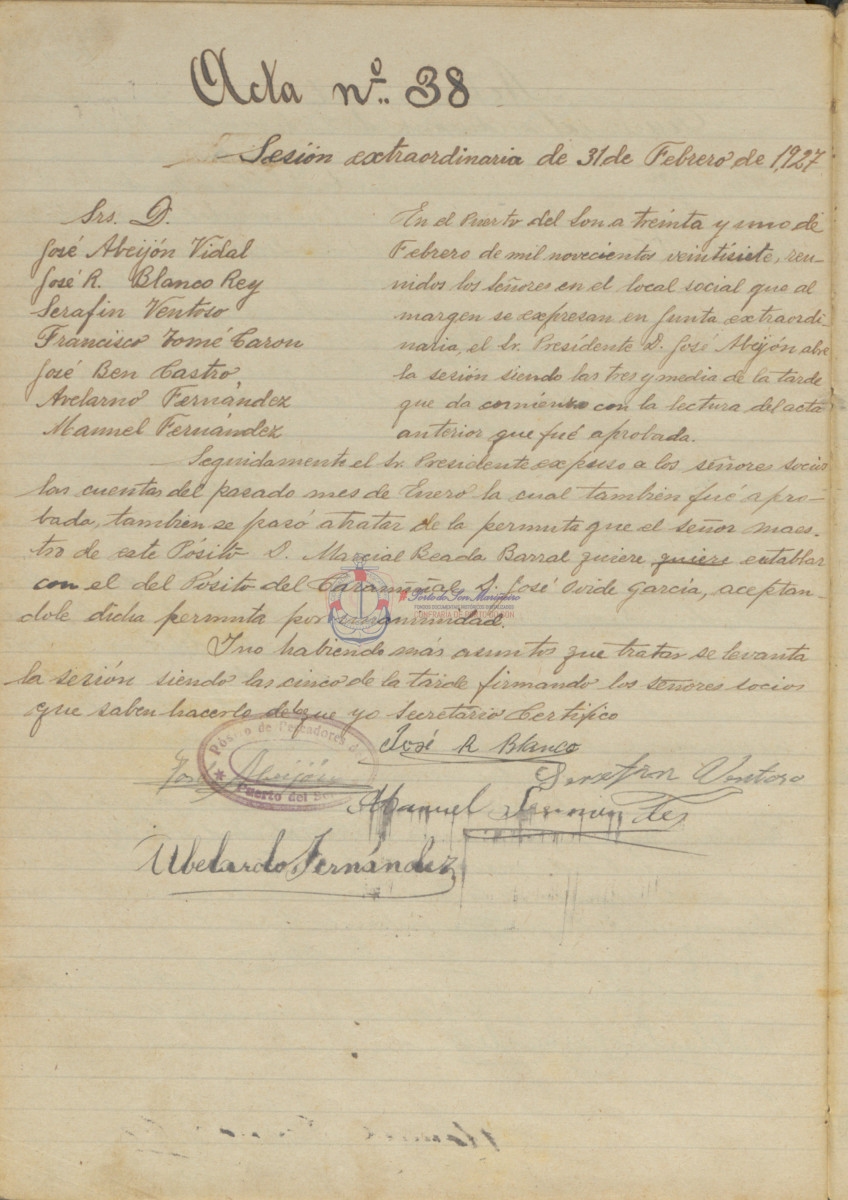 Acta nº. 38
Sesión extraordinaria de 31 de Febrero de 1,927
Srs. D.
José Abeijón Vidal
José R. Blanco Rey
Serafin Ventoso
Francisco Tomé Caron
José Ben Castro
Avelarno Fernández
Manuel Fernández
En el Puerto del Son a treinta y uno de
Febrero de mil novecientos veintisiete, reu-
nidos los señores en el local social que al
margen se expresan en Junta extraordi-
naria, el Sr. Presidente D. José Abeijón abre
la sesión siendo las tres y media de la tarde
que da comienzo con la lectura del acta
anterior que fué aprobada.
Seguidamente el Sr. Presidente expuso a los señores socios
las cuentas del pasado mes de Enero la cual tambien fué apro-
bada, tambien se pasó a tratar de la permuta que el señor maes-
tro de este Pósito D. Marcial Beada Barral quiere quiere entablar
con el del Pósito del Caramiñal D. José Ovide García, aceptan-
dole dicha permuta por unanimidad.
I no habiendo más asuntos que tratar se levanta
la sesión siendo las cinco de la tarde firmando los señores socios
que saben hacerlo de lo que yo Secretario Certifico
José R Blanco
Pósito de Pescadores de
Puerto del Son
José Abeijón
Serafin Ventoso
Manuel Fernandes
Abelardo Fernández
Porto do Son Mariñeiro
FONDOS DOCUMENTAIS HISTÓRICOS DIGITALIZADOS
CONFRARÍA DE PORTO DO SON